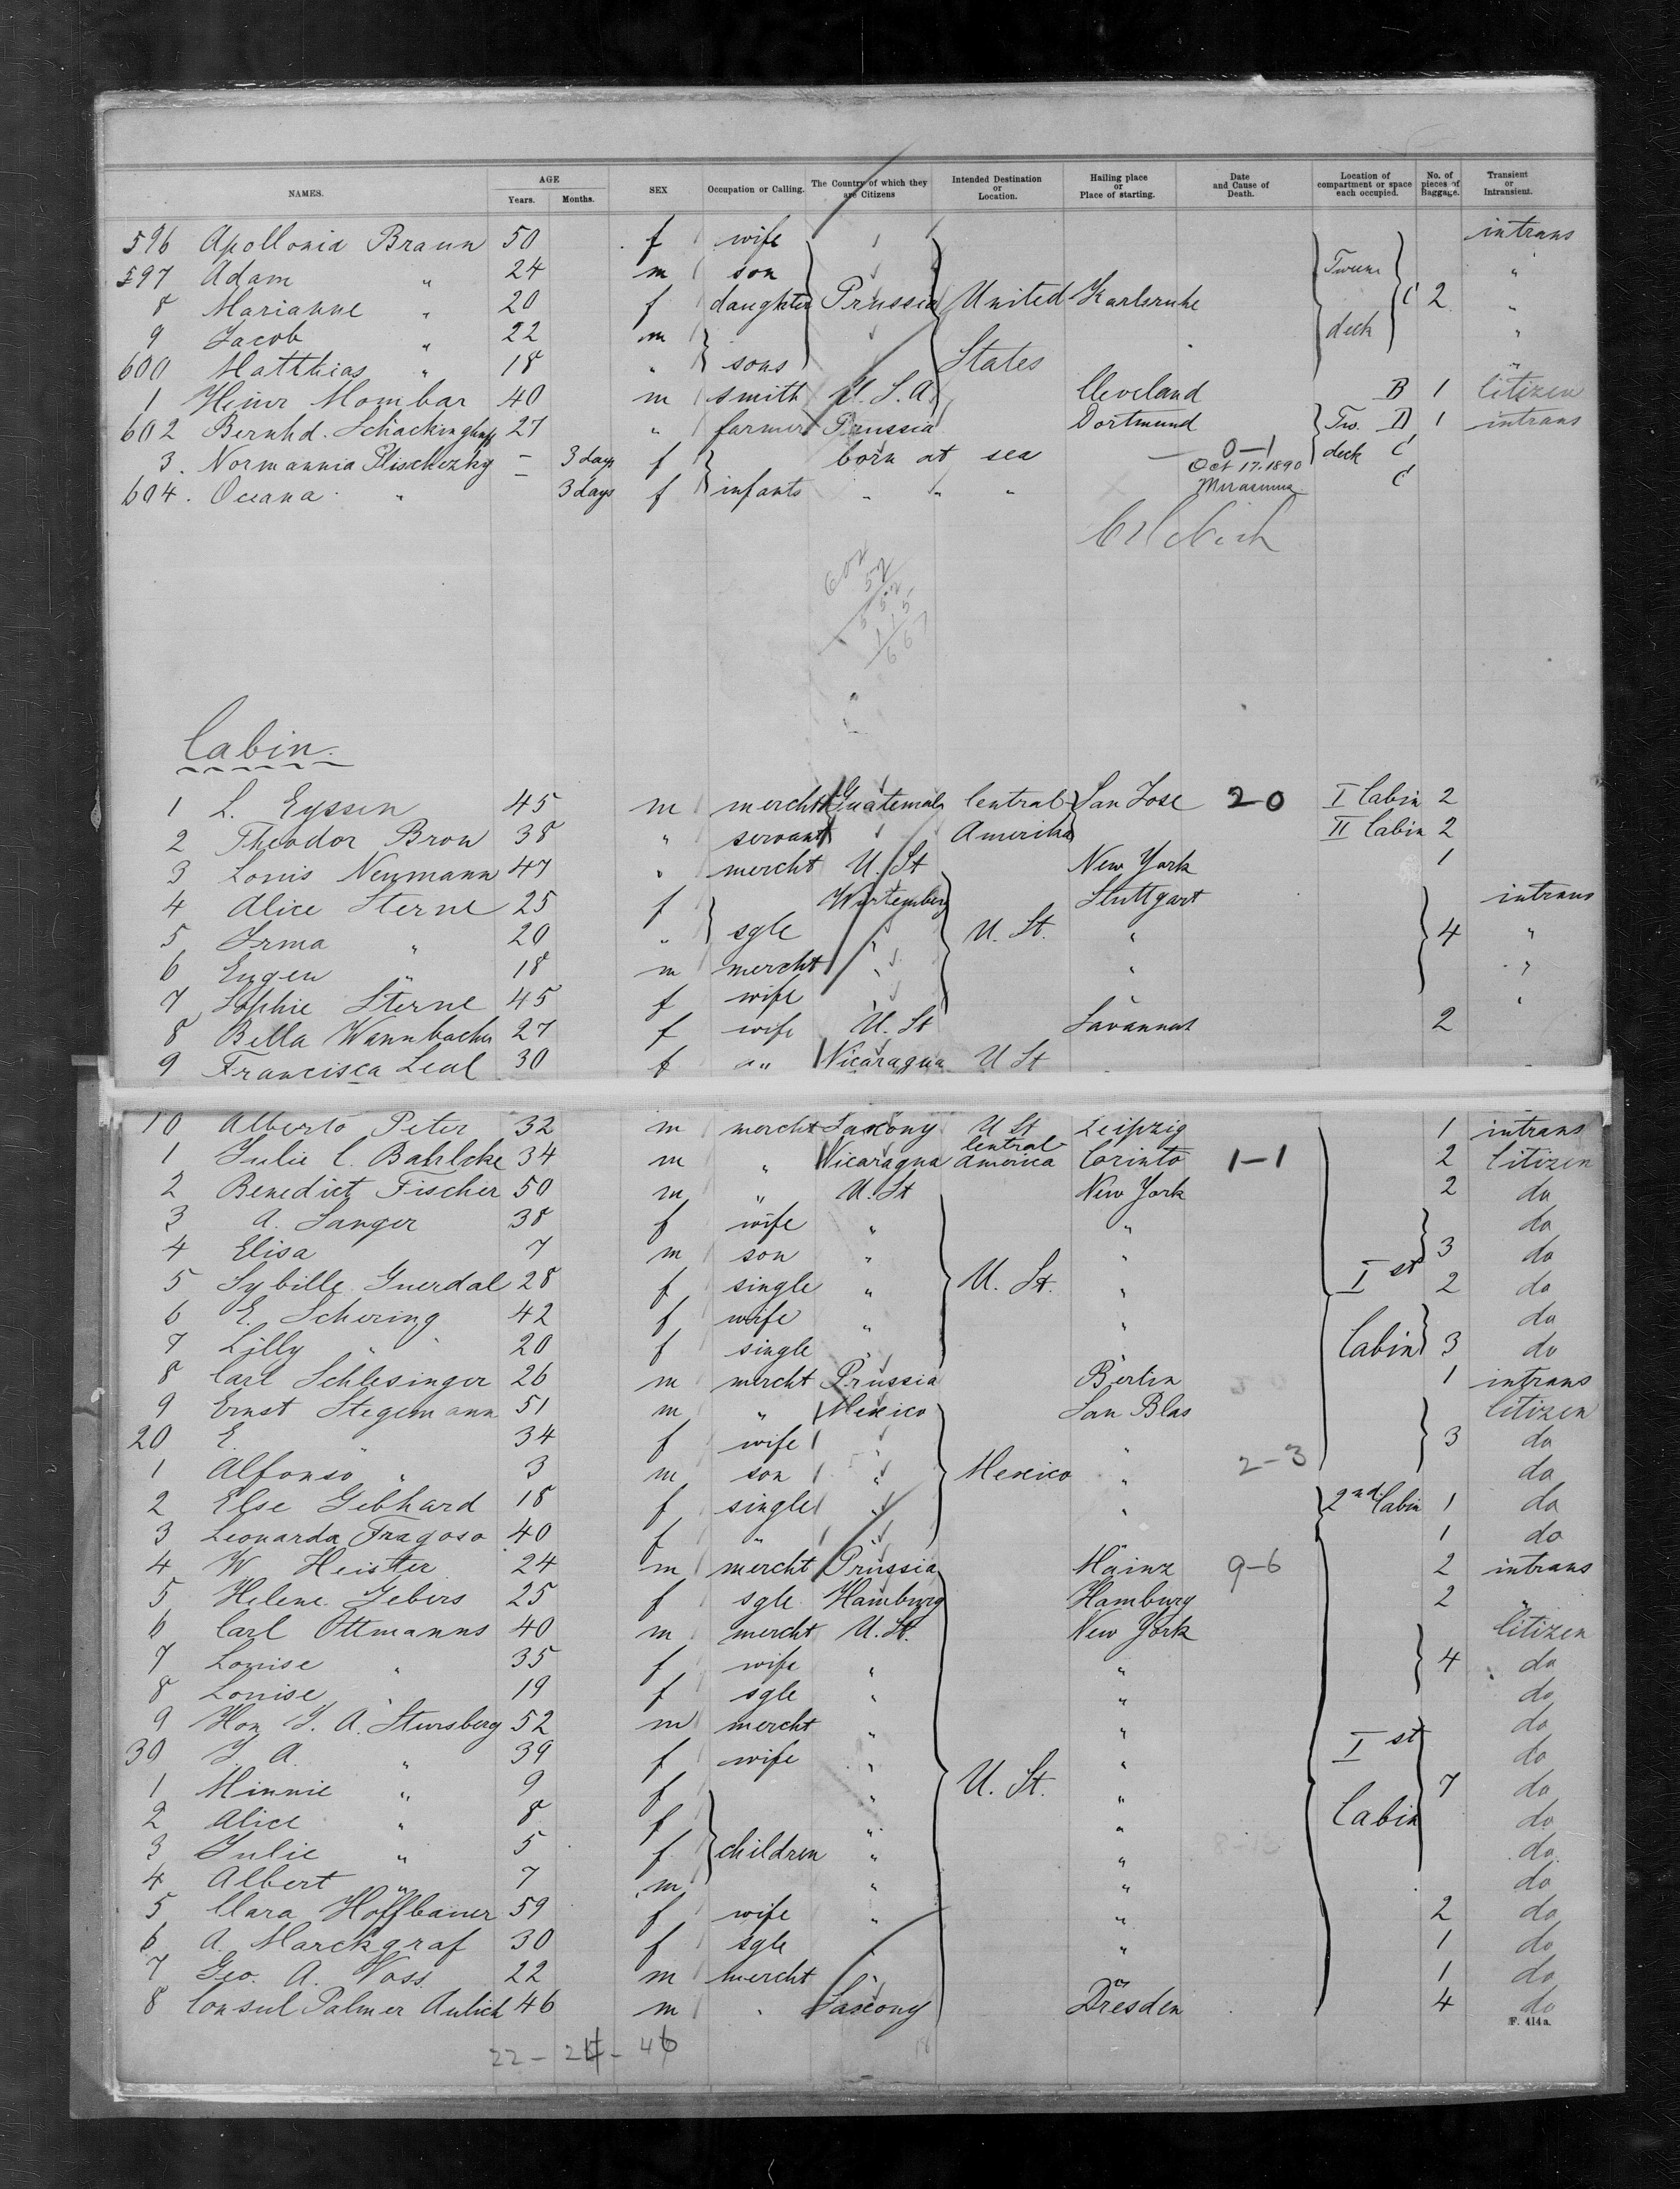 NAMES. AGE Years. Months. SEX Occupation or Calling. The Country of which they are Citizens Intended Destination or Location. Hailing place or Place of starting. Date and Cause of Death. Location of compartment or space each occupied. No. of pieces of Baggage. Transient or Intransient.
596 Apollonia Braun 50 f wife intrans
597 Adam " 24 m son Tween "
8 Marianne " 20 f daughter Prussia United Karlsruhe C 2 "
9 Jacob " 22 m deck "
600 Matthias " 18 " sons States "
1 Heinr Mombar 40 m smith U. S. A. Cleveland B 1 Citizen
602 Bernhd. 27 " farmer Prussia Dortmund Tw. D 1 intrans
3. Normannia Plischezky - 3 days f born at sea 0-1 Oct 17. 1890 deck C
604. Oceana " 3 days f infants " " " C
602
52
552
115
667
Cabin.
1 L. Eyssen 45 m mercht Guatemala Central San Jose 20 I Cabin 2
2 Theodor Bron 38 " servant Amerika II Cabin 2
3 Louis Neumann 47 " mercht U. St New York 1
4 Alice Sterne 25 f Wurtemberg Stuttgart intrans
5 Irma " 20 " sgle " U. St. " 4 "
6 Eugen " 18 m mercht " " "
7 Sophie Sterne 45 f wife " "
8 Bella Wannbacher 27 f wife U. St Savannah 2
9 Francisca Leal 30 f " " Nicaragua U St
10 Alberto Peter 32 m mercht Saxony U St Leipzig 1 intrans
1 Julie C. Bahlcke 34 m " Nicaragua Central America Corinto 1-1 2 Citizen
2 Benedict Fischer 50 m " U. St New York 2 do
3 A. Sanger 38 f wife " " do
4 Elisa 7 m son " " 3 do
5 Sybille Guerdal 28 f single " U. St. " I st 2 do
6 E. Schering 42 f wife " " do
7 Lilly " " 20 f single " " Cabin 3 do
8 Carl Schlesinger 26 m mercht Prussia Berlin 1 intrans
9 Ernst Stegemann 51 m " Mexico San Blas Citizen
20 E. " 34 f wife " " 3 do
1 Alfonso " 3 m son " Mexico " 2-3 do
2 Else Gebhard 18 f single " " 2nd Cabin 1 do
3 Leonarda Fragoso 40 f " " 1 do
4 W Heister 24 m mercht Prussia Mainz 9-6 2 intrans
5 Helene Gebers 25 f sgle Hamburg Hamburg 2 "
6 Carl Ottmanns 40 m mercht U. St. New York Citizen
7 Louise " 35 f wife " " 4 do
8 Louise " 19 f sgle " " do
9 Hon J. A. Stursberg 52 m mercht " " do
30 J. A. " 39 f wife " " I st do
1 Minnie " 9 f " U. St. " 7 do
2 Alice " 8 f " " Cabin do
3 Julie " 5 f children " " do
4 Albert " 7 m " " do
5 Clara Hoffbauer 59 f wife " " 2 do
6 A. Marckgraf 30 f sgle " " 1 do
7 Geo. A. Voss 22 m mercht " " 1 do
8 Consul Palmer Aulich 46 m " Saxony Dresden 4 do
F. 414a.